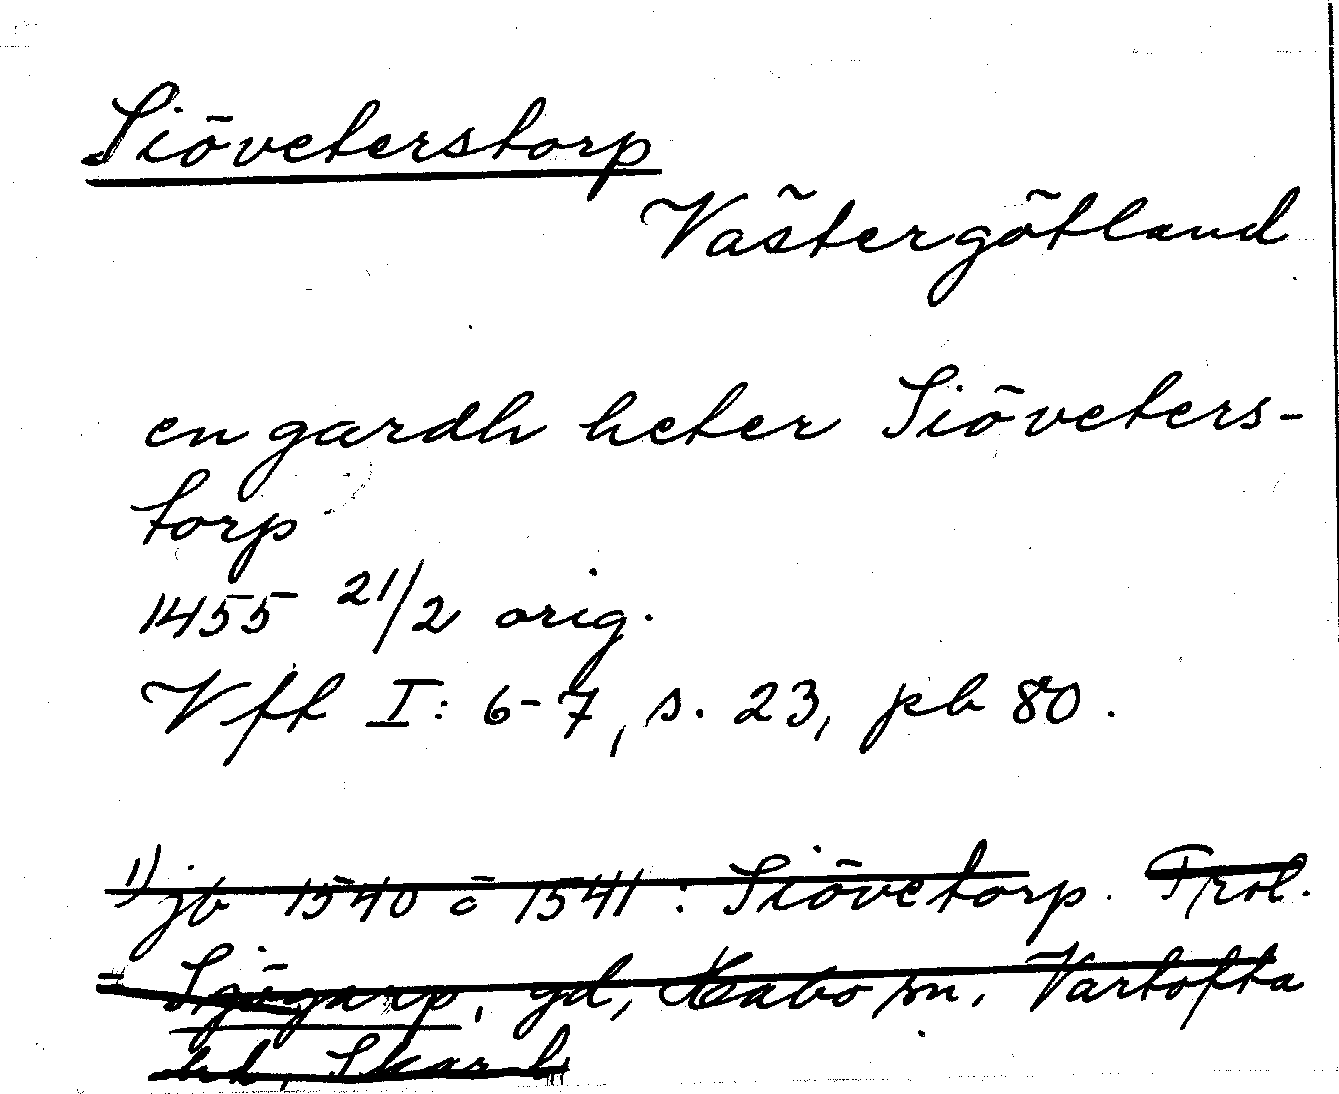 Siöveterstorp
Västergötland
en gardh heter Siöveters-
torp
1455 21/2 orig.
Vff I: 6-7, s. 23, pb 80.
1) jb 1540 o 1541 : Siövetorp. Trol.
= Sjögarp, gd, Kabo sn, Vartofta
hd, Skarab